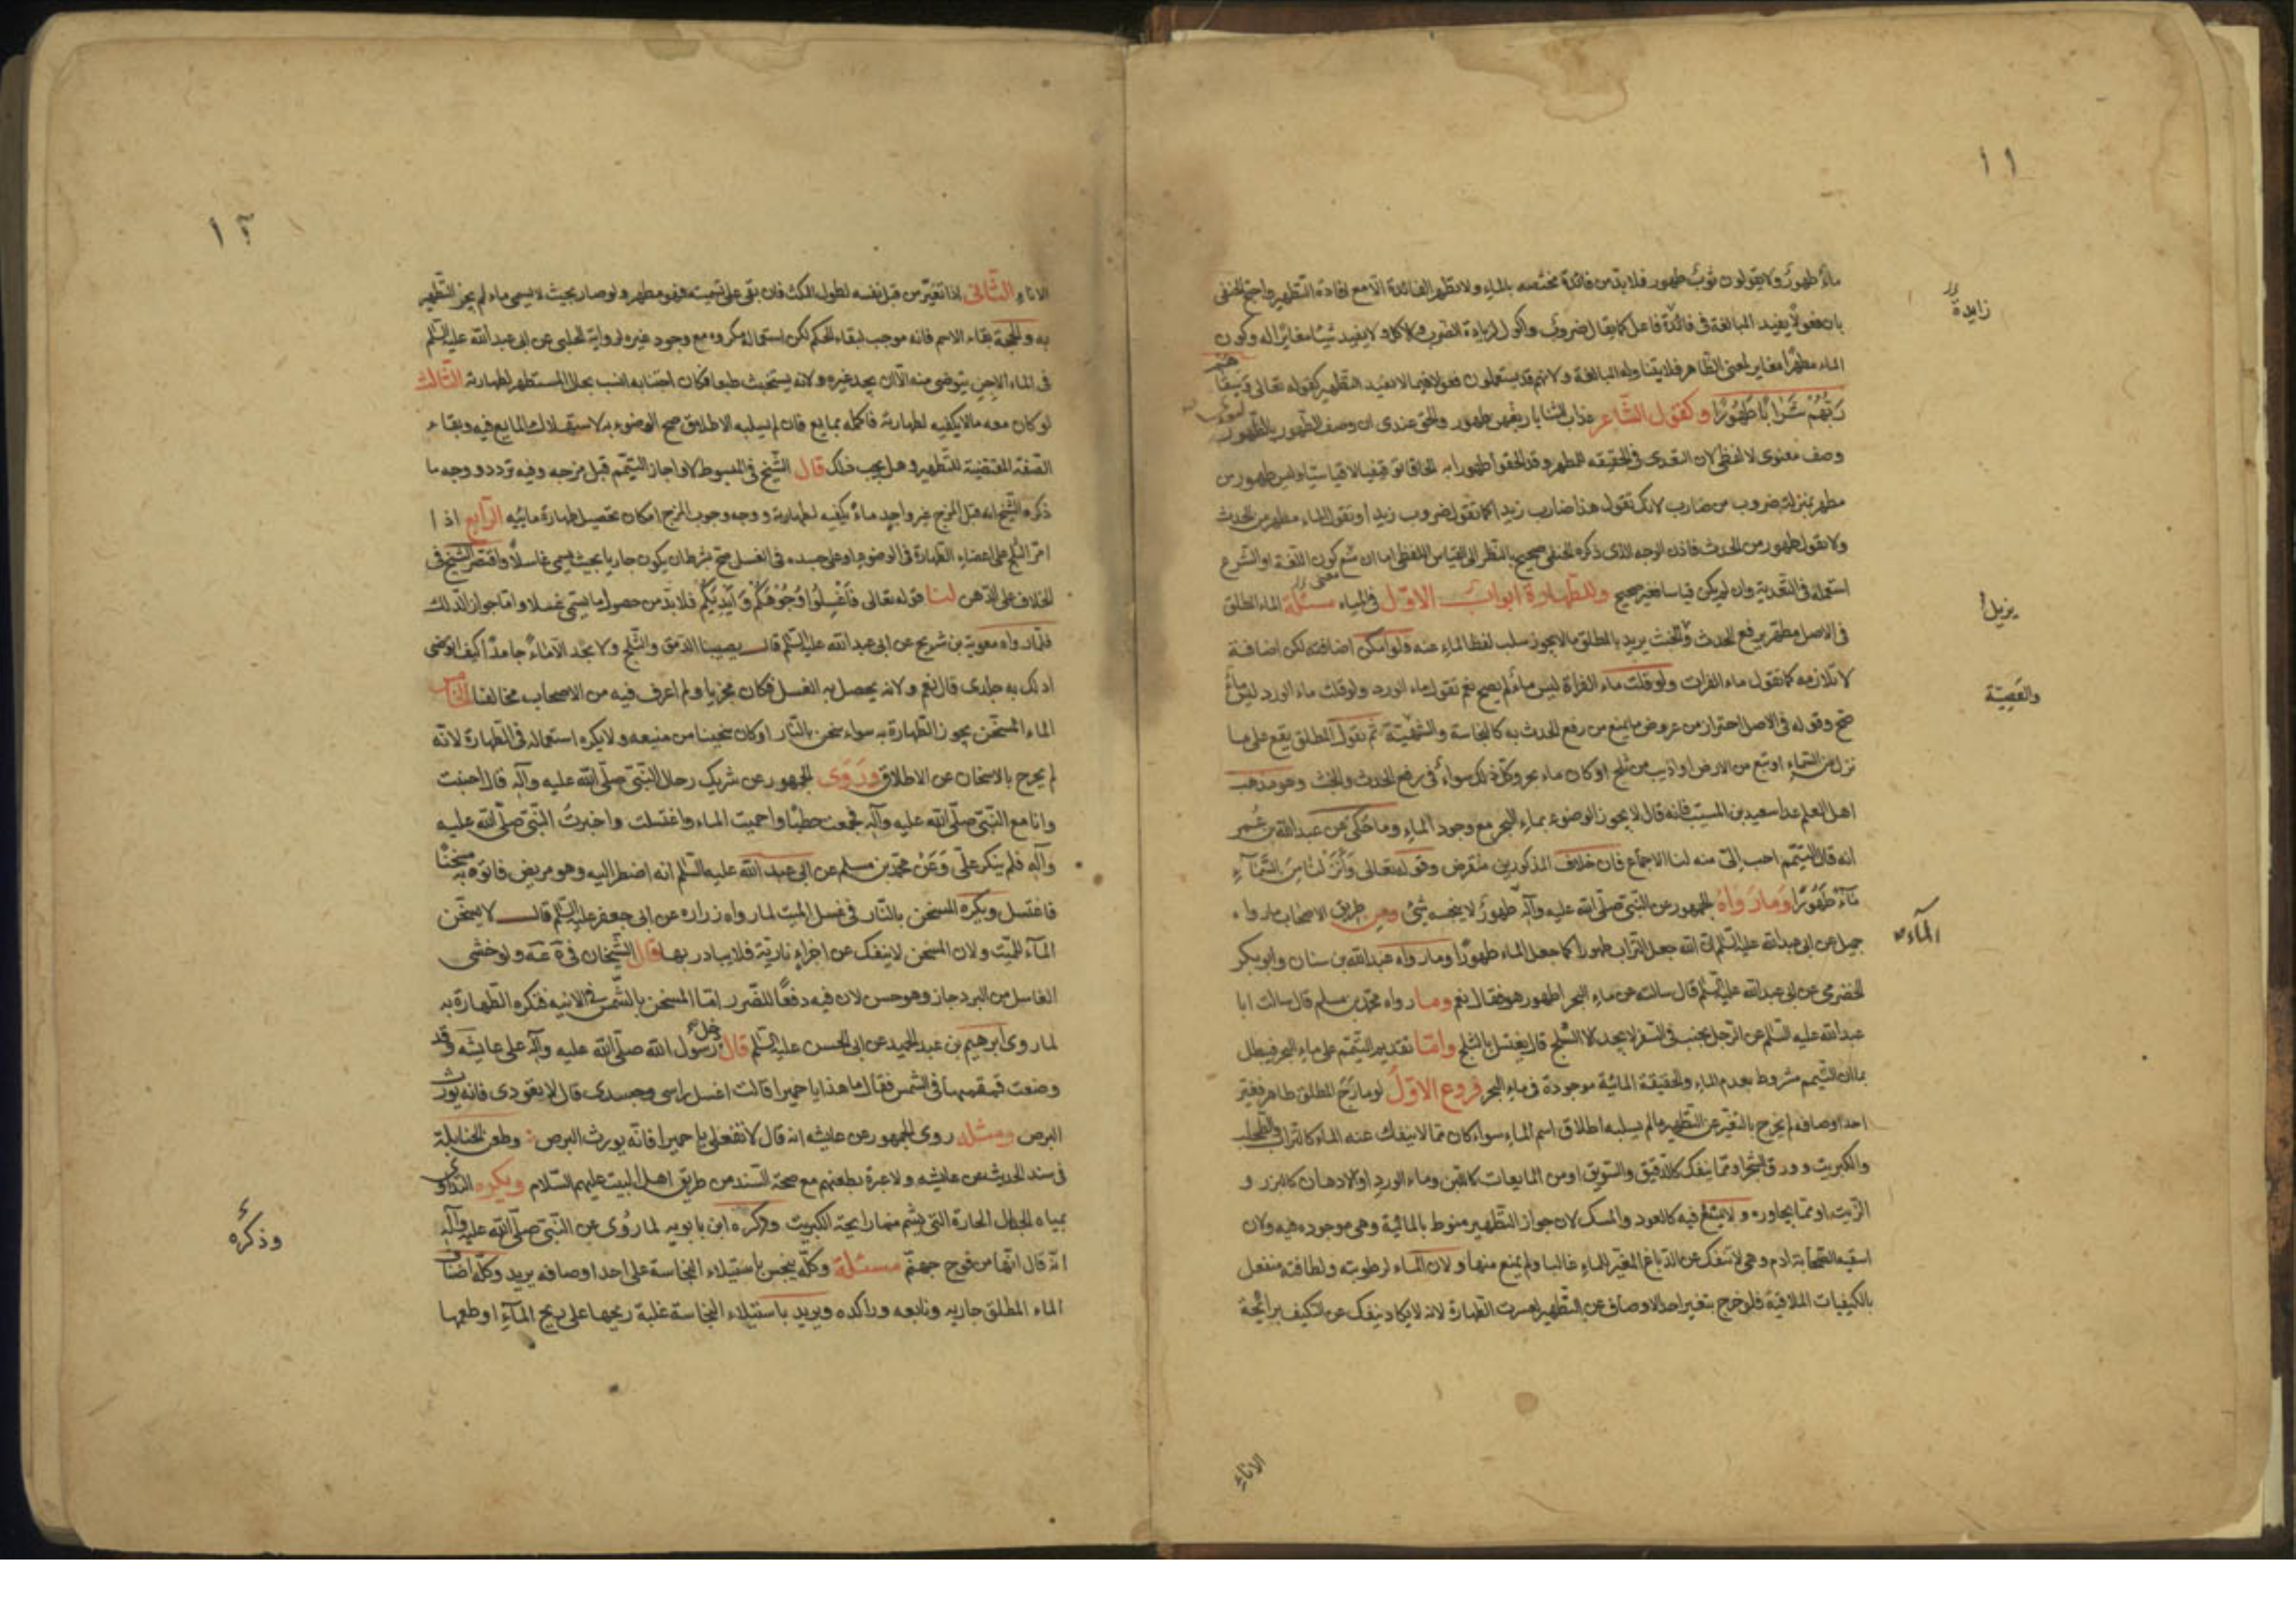 ١١
ماءٌ طهورٌ ولا يقولون ثوبٌ طهور فلا بد من فائدة مختصه بالماءِ ولا تظهر الفائدة الا مع افادة التطهير واحتج الحنفى
بان فعولًا يفيد المبالغة فى فائدة فاعل كما يقال ضروب واكول لزيادة الضرب والاكل ولا يفيد شيئا مغايرًا له وكون
زايدة
الماء مطهرا مغاير لمعنى الظاهر فلا يتناوله المبالغة ولانهم قد يستعملون فعولا فيما لا يفيد التطهير كقوله تعالى وَسَقٰيهُمْ
رَبُّهُمْ شَرَابًا طَهُورًا وكقول الشّاعر عذاب الثنايا ريقهن طهور والحق عندى ان وصف الطهور بالطهور
وصف معنوى لا لفظى لان التعدى فى الحقيقه للمطهر وقد الحقوا طهورا به الحاقا توقيفيا لا قياسيًا وليس طهور من
مطهر بمنزلة ضروب من ضارب لانك تقول هذا ضارب زيدا كما تقول ضروب زيدا وتقول الماء مطهر من الحدث
ولا تقول طهور من الحدث فاذن الوجه الذى ذكره الحنفى صحيح بالنظر الى القياس اللفظى اما ان منع كون اللغة او الشرع
استعمله فى التعدية وان لم يكن قياسا فغير صحيح وللطهارة ابواب الاوّل فى المياه مسئلة الماء المطلق
يزيل
فى الاصل مطهر يرفع الحدث والخبث يريد بالمطلق ما لا يجوز سلب لفظ الماء عنه فلو امكن اضافته لكن اضافة
لا تلازمه كما تقول ماء الفرات ولو قلت ماء الفراة ليس ماءً لم يصح نعم تقول ماء الورد ولو قلت ماء الورد ليس ماءً
صح وقوله فى الاصل احتراز من عروض ما يمنع من رفع الحدث به كالنجاسة ثم نقول المطلق يقع على ما
والعَصِيّة
نزل من السماء او نبع من الارض او اذيب من ثلج او كان ماء بحر وكل ذلك سواءٌ فى رفع الحدث والخبث وهو مذهب
اهل العلم عدا سعيد بن المسيب فانه قال لا يجوز الوضوء بماء البحر مع وجود الماءِ وما حكى عن عبد الله بن عمر
انه قال التيمم احب الىّ منه لنا الاجماع فان خلاف المذكورين منقرض وقوله تعالى وَاَنْزَلْنَا مِنَ السَّمَاءِ
مَاءً طَهُورًا وما رواهُ الجمهور عن النبى صلّى الله عليه وآله طهورٌ لا ينجسه شئ ومن طريق الاصحاب ما رواه
الماء
جميل عن ابى عبد الله عليه السلم ان الله جعل التراب طهورا كما جعل الماء طهورًا وما رواه عبد الله بن سنان وابو بكر
الحضرمى عن ابى عبد الله عليه السلم قال سالته عن ماءِ البحر اطهور هو فقال نعم وما رواه محمد بن مسلم قال سالت ابا
عبد الله عليه السلم عن الرجل يجنب فى السفر لا يجد الا الثلج قال يغتسل بالثلج وامّا تقديم التيمم على ماءِ البحر فيبطل
بما ان التيمم مشروط بعدم الماءِ والحقيقة المائية موجودة فى ماءِ البحر فروع الاوّل لو مازج المطلق طاهر فغير
احد اوصافه لم يخرج بالتغير عن التطهير ما لم يسلبه اطلاق اسم الماءِ سواء كان مما لا ينفك عنه الماء كالتراب والطحلب
والكبريت وورق الشجر او مما ينفك كالدقيق والسويق او من المايعات كاللبن وماء الورد او الادهان كالبزر و
الزيت او مما يجاوره ولا يشيع فيه كالعود والمسك لان جواز التطهير منوط بالمائية وهى موجوده فيه ولان
اسقيه الصحابة ادم وهى لا تنفك عن الدباغ المغير للماءِ غالبا ولم يمنع منها ولان الماء لرطوبته ولطافته منفعل
بالكيفيات الملاقية فلو خرج بتغير احد الاوصاف عن التطهير لعسرت الطهارة لانه لا يكاد ينفك عن التكيف برائحة
الاناءِ
١٢
الاناءِ الثّانى اذا تغير من قبل نفسه لطول المكث فان بقى على تسميته فهو مطهر ولو صار بحيث لا يسمى ماء لم يجز التطهير
به والحجة بقاء الاسم فانه موجب لبقاء الحكم لكن استعماله مكروه مع وجود غيره لرواية الحلبى عن ابى عبد الله عليه السلم
فى الماء الاجن يتوضى منه الّا ان يجد غيره ولانه يستخبث طبعا فكان اجتنابه انسب بحال المستظهر لطهارته الثّالث
لو كان معه ما لا يكفيه لطهارته فاكمله بمايع فان لم يسلبه الاطلاق صح الوضوء به لاستهلاك المايع فيه وبقاء
الصفة المقتضية للتطهير وهل يجب ذلك قال الشيخ فى المبسوط لا واجاز التيمّم قبل مزجه وفيه تردد ووجه ما
ذكره الشيخ انه قبل المزج غير واجد ماءً يكفيه لطهارته ووجه وجوب المزج امكان تحصيل طهارة مائيه الرّابع اذا
امرّ الثلج على اعضاء الطهارة فى الوضوءِ او على جسده فى الغسل صح بشرط ان يكون جاريا بحيث يسمى غاسلًا واقتصر الشيخ فى
الخلاف على الدّهن لنا قوله تعالى فَاغْسِلُوا وُجُوهَكُمْ وَاَيْدِيَكُمْ فلا بد من حصول ما يسمى غسلا واما جواز الدلك
فلما رواه معوية بن شريح عن ابى عبد الله عليه السلم قال يصيبنا الدمق والثلج ولا نجد الا ماءً جامدًا كيف اتوضى
ادلك به جلدى قال نعم ولانه يحصل به الغسل فكان مجزيا ولم اعرف فيه من الاصحاب مخالفا الخامس
الماء المسخّن يجوز الطهارة به سواء سخن بالنّار او كان سخينا من منبعه ولا يكره استعماله فى الطهارة لانّه
لم يخرج بالاسخان عن الاطلاق ورَوَى الجمهور عن شريك رحّال النّبىّ صلّى الله عليه وآله قال اجنبت
وانا مع النّبىّ صلّى الله عليه وآله فجمعت حطبًا واحميت الماء واغتسلت واخبرتُ النّبىّ صلّى الله عليه
وآله فلم ينكر علىّ وَعَنْ محمّد بن مسلم عن ابى عبد الله عليه السّلم انه اضطر اليه وهو مريض فاتوه به مسخنًا
فاغتسل ويكره المسخن بالنّار فى غسل الميت لما رواه زراره عن ابى جعفر عليه السلم قال لا يسخّن
الماءَ للميّت ولان المسخن لا ينفك عن اجزاءٍ ناريّة فلا يبادر بها قال الشّيخان ولو خشى
الغاسل من البرد جاز وهو حسن لان فيه دفعًا للضّرر امّا المسخن بالشّمس فى الانيه فتكره الطهارة به
لما روى ابرهيم بن عبد الحميد عن ابى الحسن عليه السّلم قال دخل رسول الله صلّى الله عليه وآله على عايشه وقد
وضعت قمقمتها فى الشمس فقال ما هذا يا حميرا قالت اغسل راسى وجسدى قال لا تعودى فانه يورث
البرص ومثله روى الجمهور عن عايشه انه قال لا تفعلى يا حميرا فانّه يورث البرص وطعن الحنابلة
فى سند الحديث عن عايشه ولا عبرة بطعنهم مع صحة السّند من طريق اهل البيت عليهم السّلام ويكره التداوى
بمياه الجبال الحارة التى يشم منها رايحة الكبريت وذكره ابن بابويه لما رُوى عن النّبىّ صلّى الله عليه وآله
وذكره
انّه قال انّها من فوح جهنّم مسئلة وكلّه ينجس باستيلاء النجاسة على احد اوصافه يريد وكلّه اصناف
الماء المطلق جاريه ونابعه وراكده ويريد باستيلاء النجاسة غلبة ريحها على ريح المآءِ او طعمها